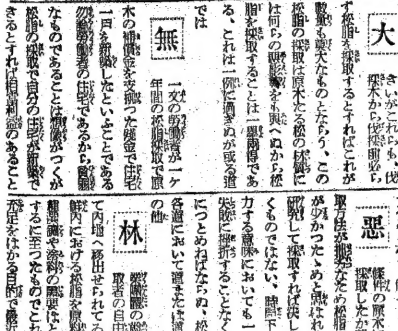 大
きいがこれらも、伐
採木から伐採前必ら
ず松脂を採取するとすればこれが
数量も莫大なものとならう、この
松脂の採取は原木たる松の材質に
は何らの悪影響をも與へぬから松
脂を採取することは一擧兩得であ
る、これは一例に過ぎぬが或る道
では
無
一文の勞働者が一ヶ
年間の松脂採取で原
木の補償金を支拂つた殘金で住宅
一戸を新築したといふことである
勿論勞働者の住宅であるから
なものであることは想像がつくが
松脂の採取で自分の住宅が新築で
きるとすれば相當利益のあること
惡
條件の原木
採取したが
取方法が拙劣なため松脂
が少かつたためと思はれ
研究して採取すれば決し
くものではない、時局下
力する意味においても一
失敗に挫折することなく
につとめねばならぬ、松
各道において道または道
の他
林
取者の自由
て内地へ移出せられてる
鮮内における松脂を原料
や塗料の
するに至つたものでこれ
充足をはかる目的で最近